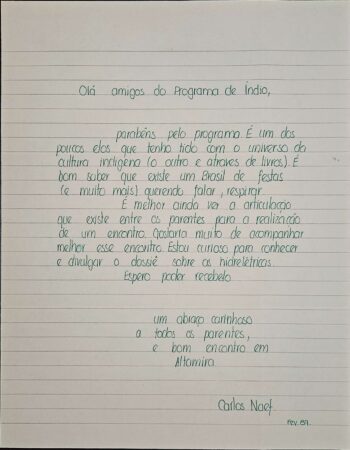 Olá amigos do Programa de Índio,
parabéns pelo programa. É um dos
poucos elos que tenho tido com o universo da
cultura indígena (o outro é através de livros). É
bom saber que existe um Brasil de festas
(e muito mais) querendo falar, respirar.
É melhor ainda ver a articulação
que existe entre os parentes para a realização
de um encontro. Gostaria muito de acompanhar
melhor esse encontro. Estou curioso para conhecer
e divulgar o dossiê sobre as hidrelétricas.
Espero poder recebelo
um abraço carinhoso
a todos os parentes,
e bom encontro em
Altamira
Carlos Naef.
fev. 89.